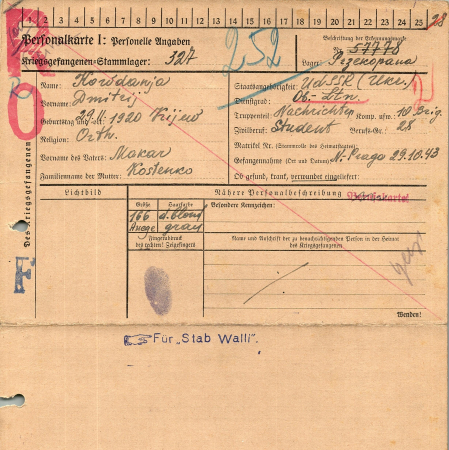 1 2 3 4 5 6 7 8 9 10 11 12 13 14 15 16 17 18 19 20 21 22 23 24 25
28
Personalkarte I: Personelle Angaben
Kriegsgefangenen-Stammlager: 327
252
Beschriftung der Erkennungsmarke
Nr. 57778
Lager:
Des Kriegsgefangenen
R
O
F
Name: Kowdanja
Vorname: Dmitrij
Geburtstag und -ort: 29.11 1920 Kijew
Religion: Orth.
Vorname des Vaters: Makar
Familienname der Mutter: Kostenko
Staatsangehörigkeit: UdSSR (Ukr.)
Dienstgrad: Ob.-Ltn.
Truppenteil: Nachrichten Komp. usw.: 10 Brig.
Zivilberuf: Student Berufs-Gr.: 25
Matrikel Nr. (Stammrolle des Heimatstaates):
Gefangennahme (Ort und Datum): 29.10.43
Ob gesund, krank, verwundet eingeliefert:
Lichtbild
Nähere Personalbeschreibung
Größe Haarfarbe Besondere Kennzeichen:
166 d.blond
Auge grau
Fingerabdruck
des rechten! Zeigefingers
Name und Anschrift der zu benachrichtigenden Person in der Heimat
des Kriegsgefangenen
Wenden!
Für „Stab Walli".